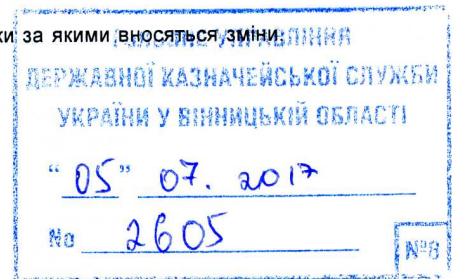 ки за якими вносяться зміни:
ГОЛОВНЕ УПРАВЛІННЯ
ДЕРЖАВНОЇ КАЗНАЧЕЙСЬКОЇ СЛУЖБИ
УКРАЇНИ У ВІННИЦЬКІЙ ОБЛАСТІ
"05" 07. 2017
№ 2605
№8